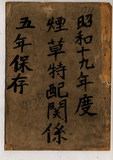 昭和十九年度
煙草特配関係
五年保存